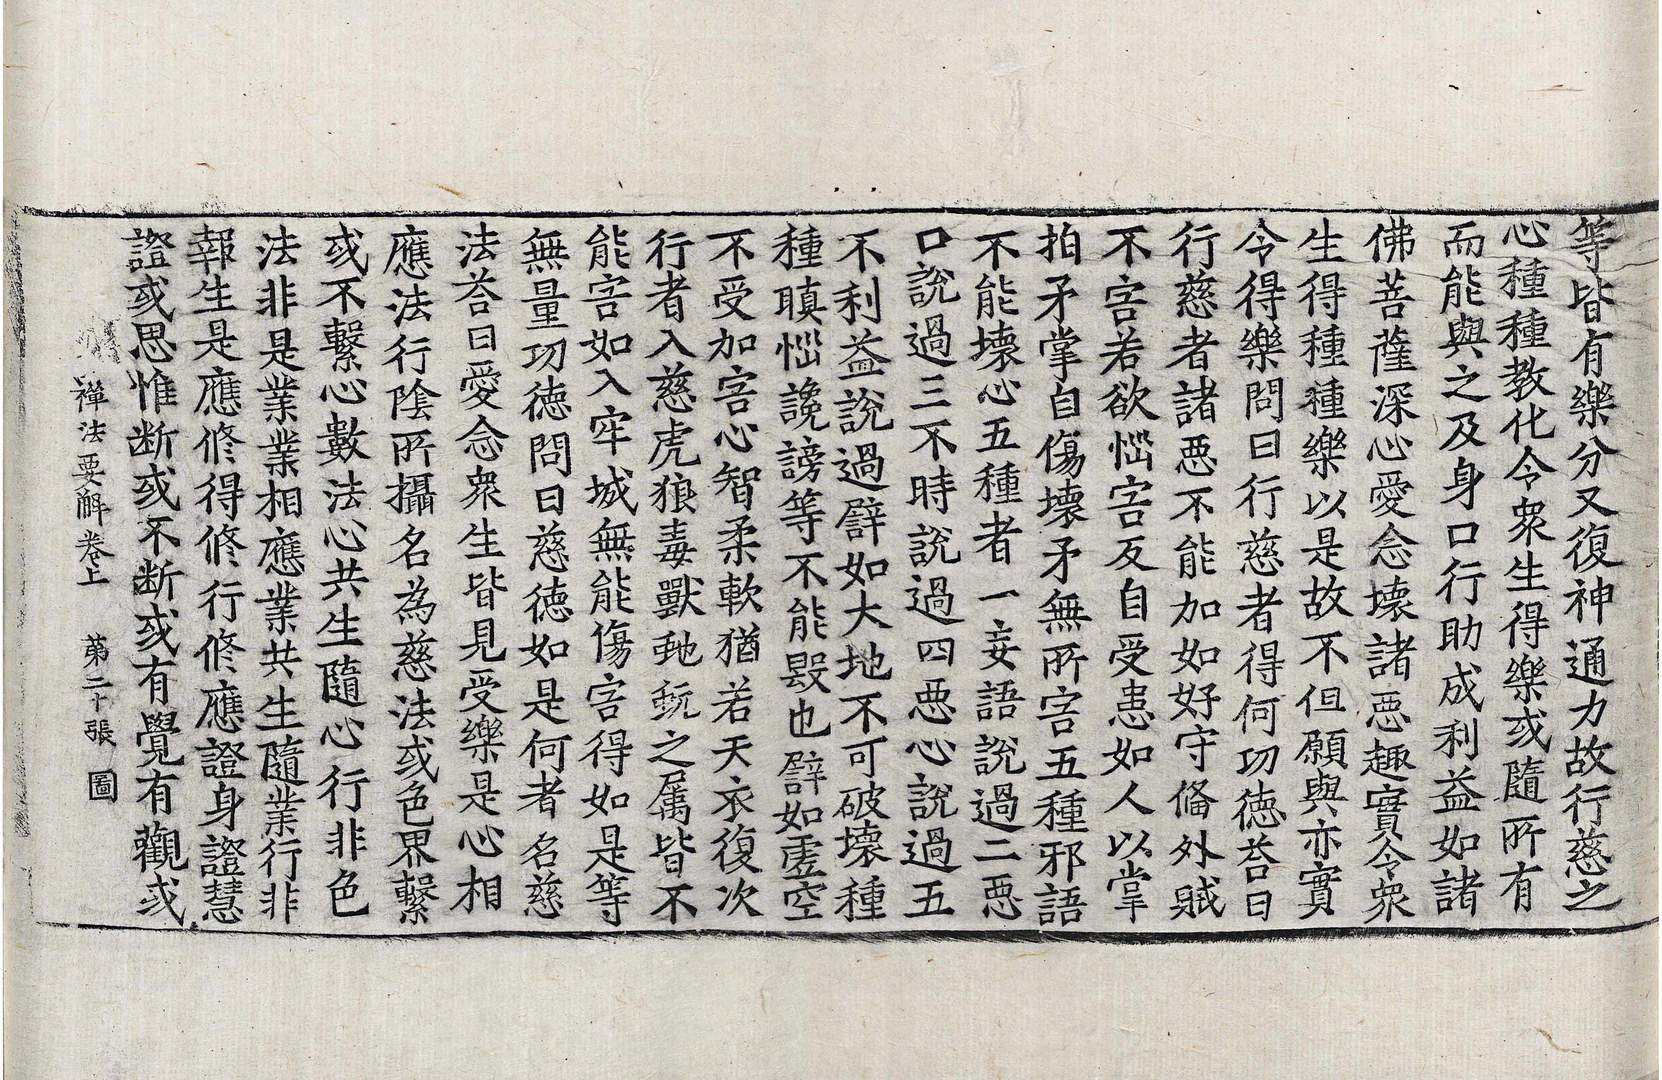 等皆有樂分又復神通力故行慈之
心種種教化令衆生得樂或隨所有
而能與之及身口行助成利益如諸
佛菩薩深心愛念壞諸惡趣實令衆
生得種種樂以是故不但願與亦實
令得樂問曰行慈者得何功德荅曰
行慈者諸惡不能加如好守備外賊
不害若欲惱害反自受患如人以掌
拍矛掌自傷壞矛無所害五種邪語
不能壞心五種者一妄語說過二惡
口說過三不時說過四惡心說過五
不利益說過譬如大地不可破壞種
種瞋惱讒謗等不能毀也譬如虛空
不受加害心智柔軟猶若天衣復次
行者入慈虎狼毒獸虵蚖之属皆不
能害如入牢城無能傷害得如是等
無量功德問曰慈德如是何者名慈
法荅曰愛念衆生皆見受樂是心相
應法行陰所攝名為慈法或色界繫
或不繫心數法心共生隨心行非色
法非是業業相應業共生隨業行非
報生是應修得修行修應證身證慧
證或思惟断或不断或有覺有觀或
禪法要解卷上　第二十張　圖